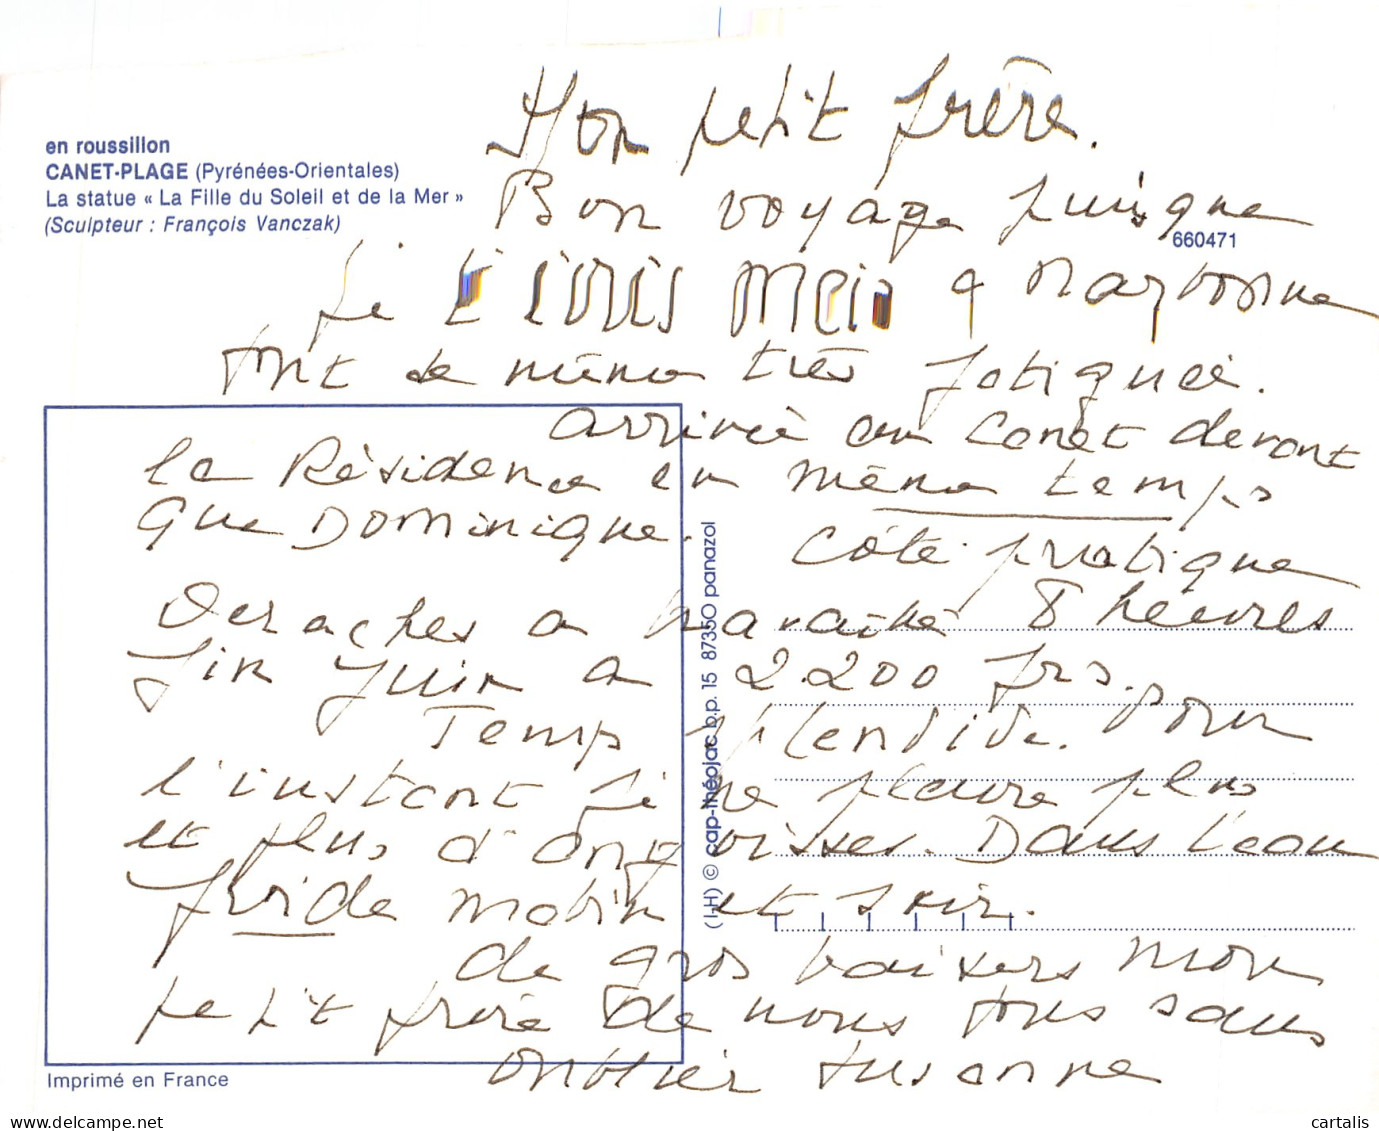 en roussillon
CANET-PLAGE (Pyrénées-Orientales)
La statue « La Fille du Soleil et de la Mer »
(Sculpteur : François Vanczak)
660471
Mon petit frère.
Bon voyage puisque
je à Narbonne
tout de même très fatiguée.
arrivée au Canet devant
la Résidence en même temps
que Dominique. Côté pratique
8 heures
fin Juin a 2.200 frs.
Temps splendide. pour
l'instant je ne pleure plus
et plus d'angoisses. Dans l'eau
froide matin et soir.
de gros baisers mon
petit frère de nous tous sans
oublier Susanne
(I-H) © cap-théojac b.p. 15 87350 panazol
Imprimé en France
delcampe.net
cartalis